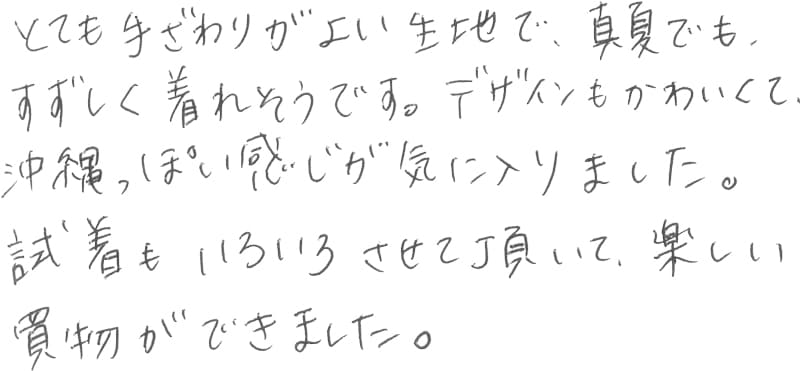 とても手ざわりがよい生地で、真夏でも、
すずしく着れそうです。デザインもかわいくて、
沖縄っぽい感じが気に入りました。
試着もいろいろさせて頂いて、楽しい
買物ができました。